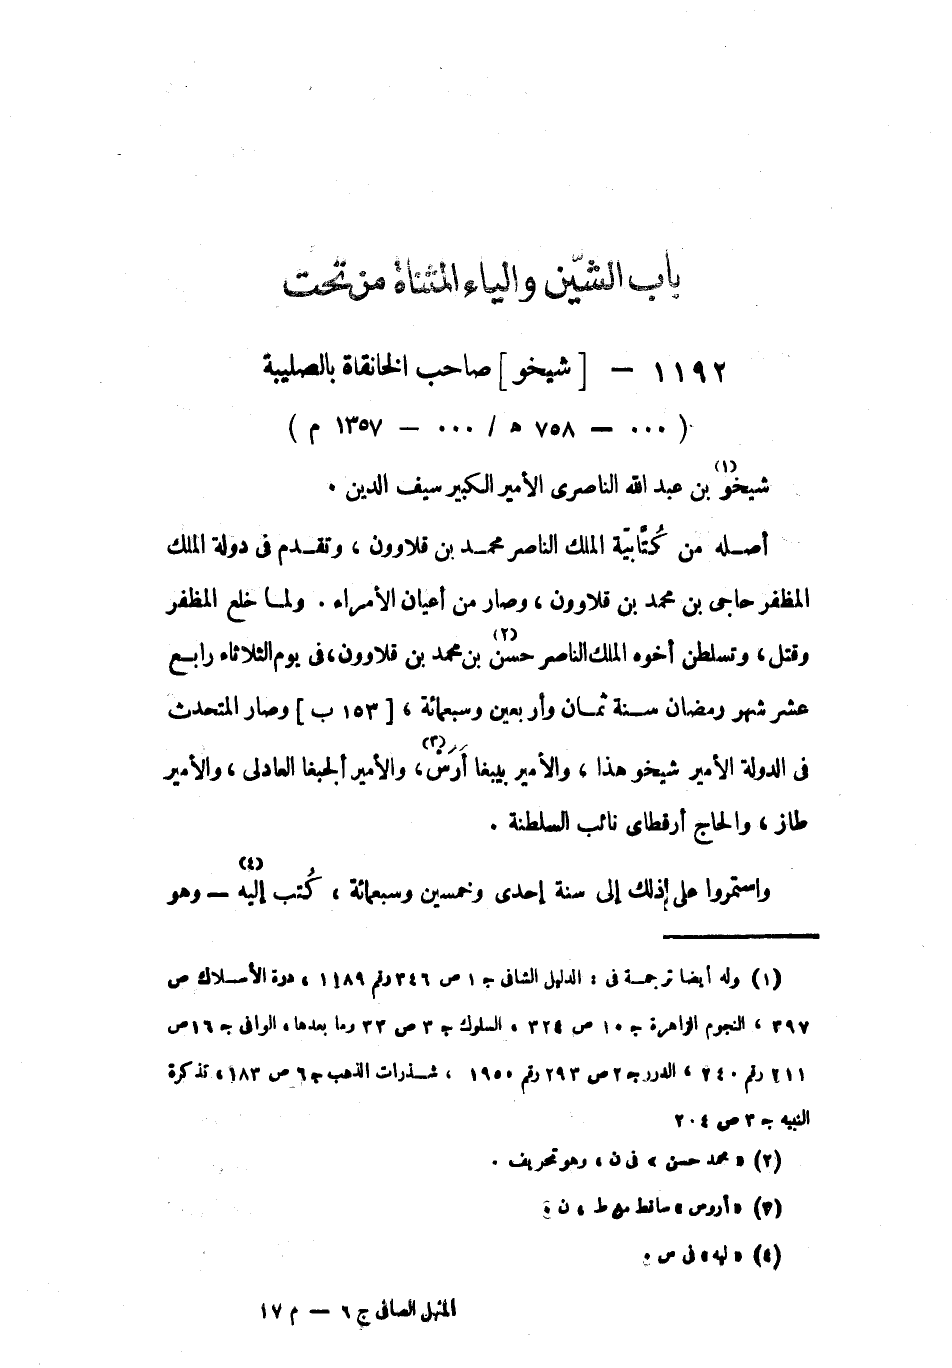 باب الشّين والياء المثناة من تحت
١١٩٢ — [ شيخو ] صاحب الخانقاة بالصليبة
( ٠٠٠ — ٧٥٨ هـ / ٠٠٠ — ١٣٥٧ م )
شيخو (١) بن عبد الله الناصرى الأمير الكبير سيف الدين .
أصله من كُتَّابيّة الملك الناصر محمد بن قلاوون ، وتقدم فى دولة الملك
المظفر حاجى بن محمد بن قلاوون ، وصار من أعيان الأمراء . ولما خلع المظفر
وقتل ، وتسلطن أخوه الملك الناصر حسن (٢) بن محمد بن قلاوون ، فى يوم الثلاثاء رابع
عشر شهر رمضان سنة ثمان وأربعين وسبعمائة ، [ ١٥٣ ب ] وصار المتحدث
فى الدولة الأمير شيخو هذا ، والأمير بيبغا أَرَسْ (٣) ، والأمير ألجبغا العادلى ، والأمير
طاز ، والحاج أرقطاى نائب السلطنة .
واستمروا على ذلك إلى سنة إحدى وخمسين وسبعمائة ، كُتب إليه (٤) — وهو
(١) وله أيضا ترجمة فى : الدليل الشافى ج ١ ص ٣٤٦ رقم ١١٨٩ ، درة الأسلاك ص
٣٩٧ ، النجوم الزاهرة ج ١٠ ص ٣٢٤ ، السلوك ج ٣ ص ٣٣ وما بعدها ، الوافى ج ١٦ ص
٢١١ رقم ٢٤٠ ، الدرر ج ٢ ص ٢٩٣ رقم ١٩٥٠ ، شذرات الذهب ج ٦ ص ١٨٣ ، تذكرة
النبيه ج ٣ ص ٢٠٤
(٢) « محمد حسن » فى ن ، وهو تحريف .
(٣) « أروس » ساقط من ط ، ن .
(٤) « ليه » فى س .
المنهل الصافى ج ٦ — م ١٧